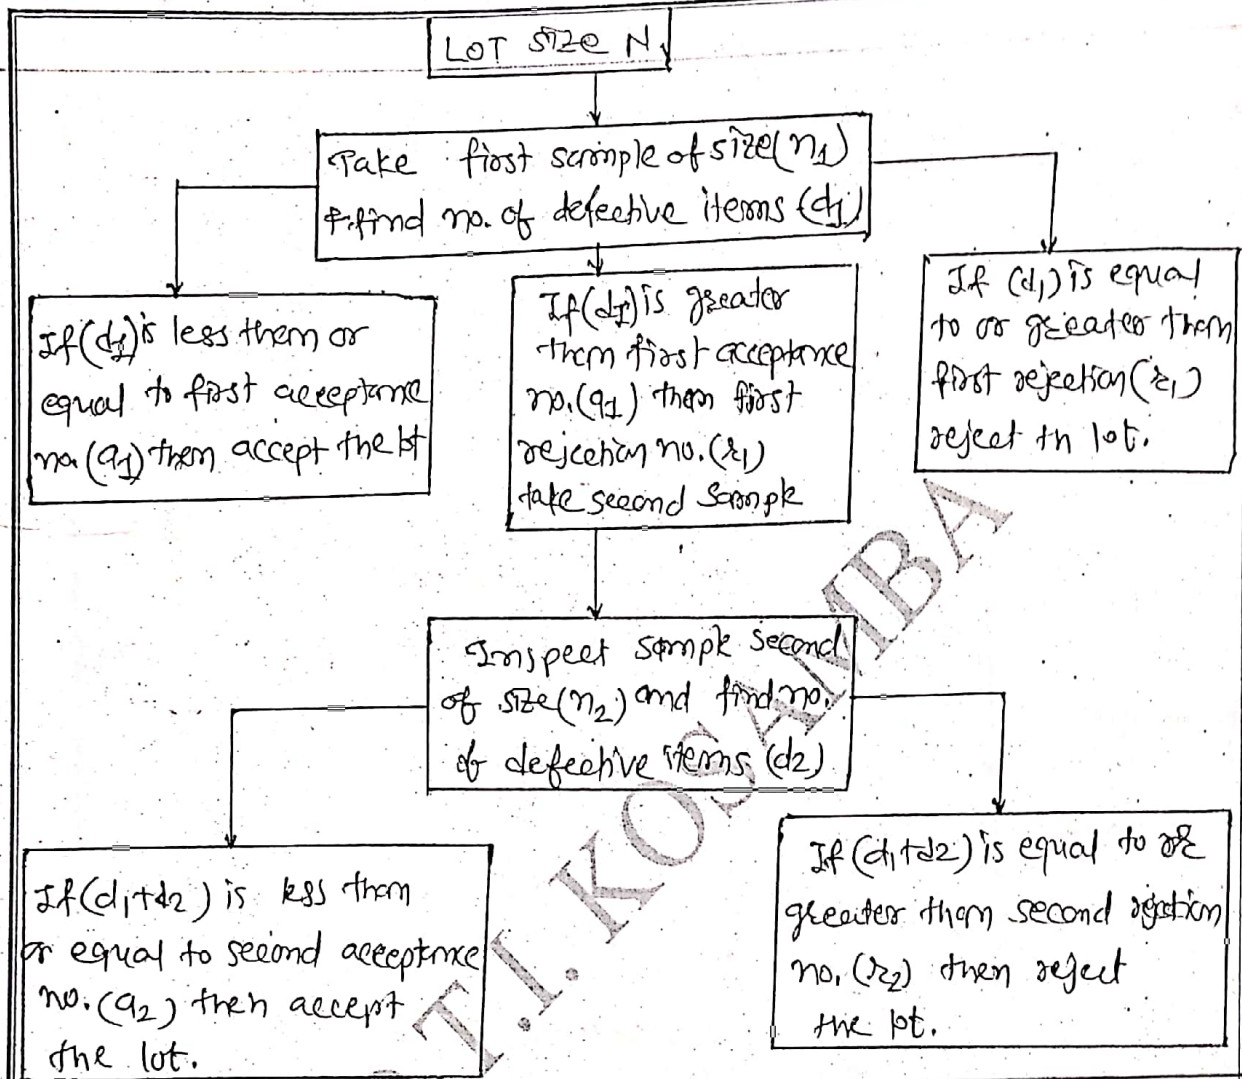 LOT size N.
Take first sample of size (n1)
& find no. of defective items (d1)
If (d1) is less them or
equal to first acceptance
no. (a1) then accept the lot
If (d1) is greater
then first acceptance
no. (a1) then first
rejection no. (r1)
take second sample
If (d1) is equal
to or greater them
first rejection (r1)
reject th lot.
Inspect sample second
of size (n2) and find no.
of defective items (d2)
If (d1+d2) is less than
or equal to second acceptance
no. (a2) then accept
the lot.
If (d1+d2) is equal to or
greater them second rejection
no. (r2) then reject
the lot.
T.I. KOSAMBA